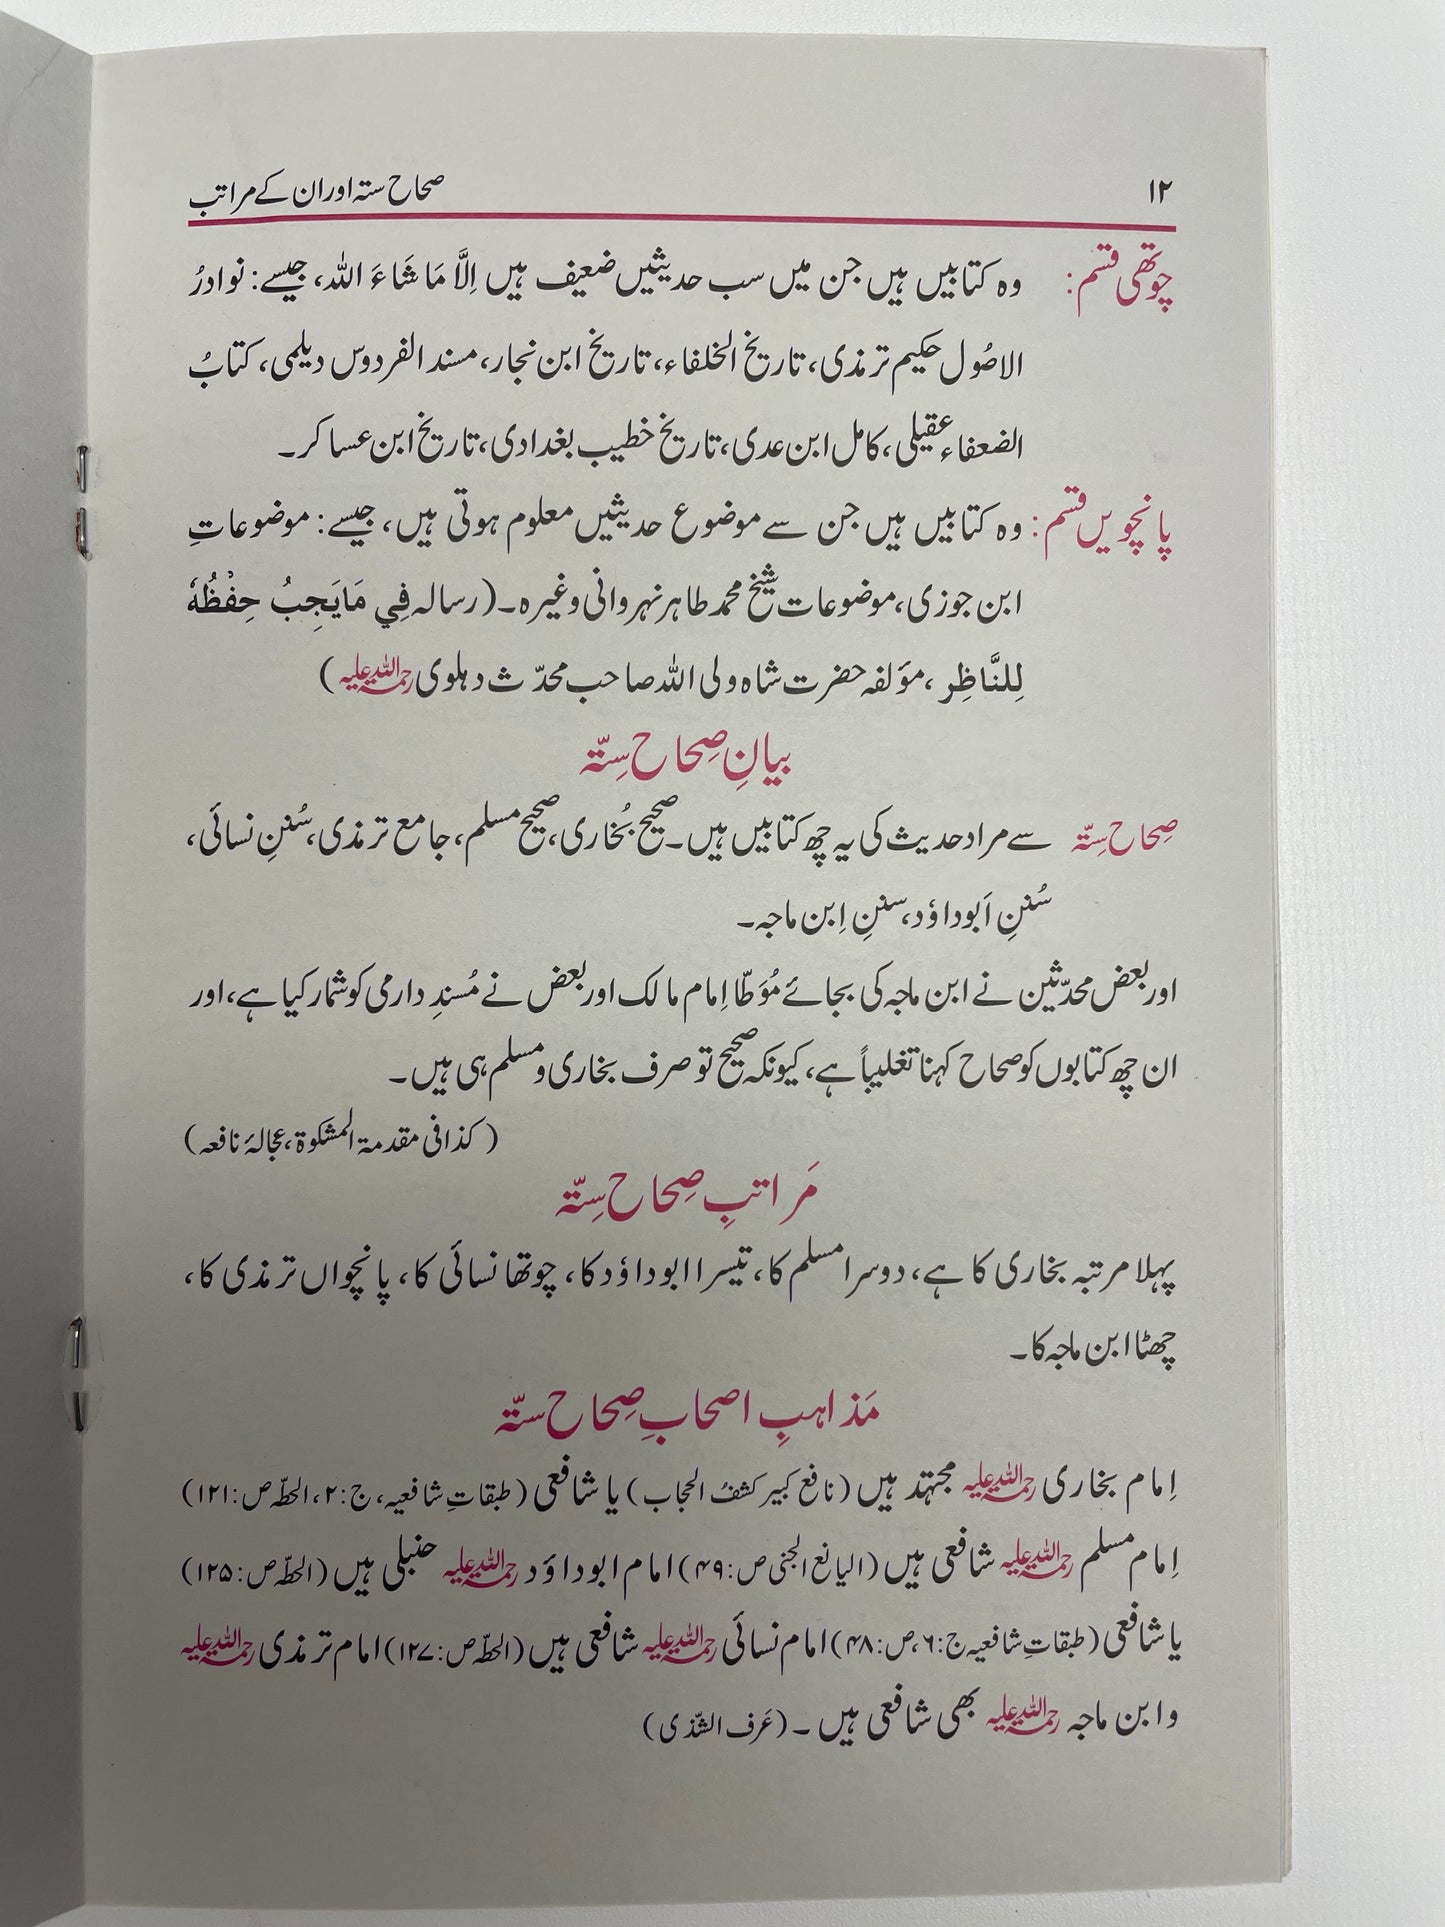 ۱۲ صحاح ستہ اور ان کے مراتب
چوتھی قسم: وہ کتابیں ہیں جن میں سب حدیثیں ضعیف ہیں اِلَّا مَا شَاءَ اللہ، جیسے: نوادرُ
الاصُول حکیم ترمذی، تاریخ الخلفاء، تاریخ ابن نجار، مسند الفردوس دیلمی، کتابُ
الضعفاء عقیلی، کامل ابن عدی، تاریخ خطیب بغدادی، تاریخ ابن عساکر۔
پانچویں قسم: وہ کتابیں ہیں جن سے موضوع حدیثیں معلوم ہوتی ہیں، جیسے: موضوعاتِ
ابن جوزی، موضوعات شیخ محمد طاہر نہروانی وغیرہ۔ (رسالہ فِي مَا يَجِبُ حِفْظُهٗ
لِلنَّاظِرِ ، مؤلفہ حضرت شاہ ولی اللہ صاحب محدّث دہلوی رحمۃ اللہ علیہ)
بیانِ صِحاح سِتّہ
صِحاح سِتّہ سے مراد حدیث کی یہ چھ کتابیں ہیں۔ صحیح بُخاری، صحیح مسلم، جامع ترمذی، سُننِ نسائی،
سُننِ اَبوداؤد، سننِ اِبن ماجہ۔
اور بعض محدّثین نے ابن ماجہ کی بجائے مُوَطّا اِمام مالک اور بعض نے مُسندِ دارمی کو شمار کیا ہے، اور
ان چھ کتابوں کو صحاح کہنا تغلیباً ہے، کیونکہ صحیح تو صرف بخاری و مسلم ہی ہیں۔
(کذا فی مقدمۃ المشکوۃ، عجالۂ نافعہ)
مَراتبِ صِحاح سِتّہ
پہلا مرتبہ بخاری کا ہے، دوسرا مسلم کا، تیسرا ابوداؤد کا، چوتھا نسائی کا، پانچواں ترمذی کا،
چھٹا ابن ماجہ کا۔
مَذاہبِ اصحابِ صِحاح ستّہ
اِمام بخاری رحمۃ اللہ علیہ مجتہد ہیں (نافع کبیر کشفُ الحجاب) یا شافعی (طبقاتِ شافعیہ، ج:۲، الحطّہ ص:۱۲۱)
اِمام مسلم رحمۃ اللہ علیہ شافعی ہیں (الیانع الجنی ص:۴۹) امام ابوداؤد رحمۃ اللہ علیہ حنبلی ہیں (الحطّہ ص:۱۲۵)
یا شافعی (طبقاتِ شافعیہ ج:۶، ص:۴۸) امام نسائی رحمۃ اللہ علیہ شافعی ہیں (الحطّہ ص:۱۲۷) امام ترمذی رحمۃ اللہ علیہ
و ابن ماجہ رحمۃ اللہ علیہ بھی شافعی ہیں ۔ (عَرف الشّذی)